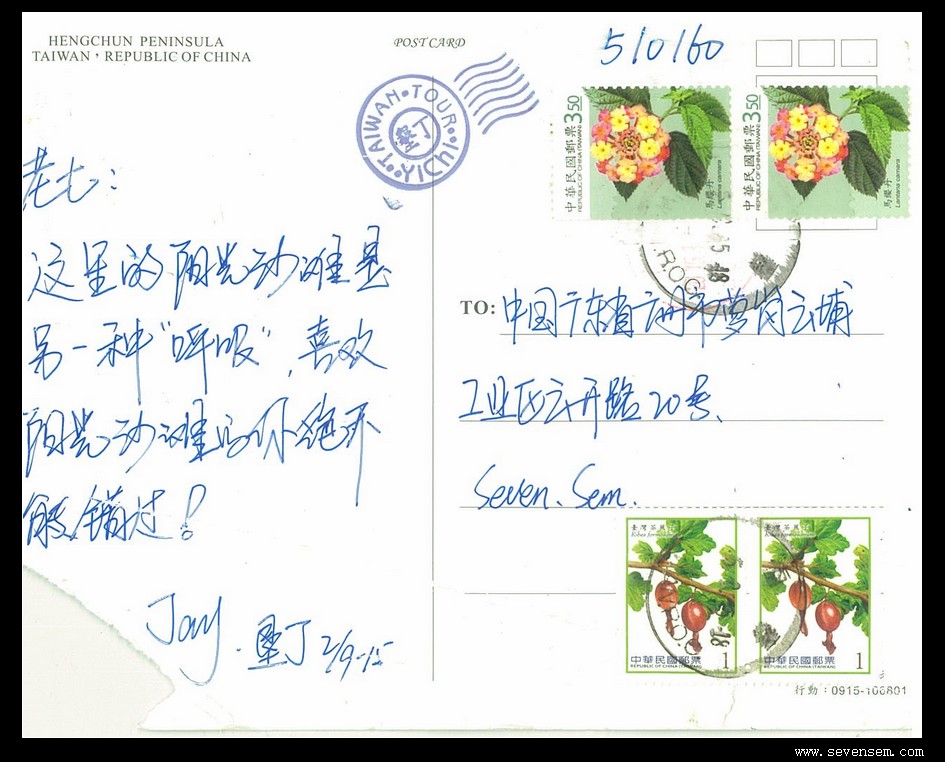 HENGCHUN PENINSULA
TAIWAN，REPUBLIC OF CHINA
POST CARD
510160
TAIWAN·TOUR·YICHI
墾丁
3.50
中華民國郵票
REPUBLIC OF CHINA (TAIWAN)
馬纓丹
Lantana camara
3.50
中華民國郵票
REPUBLIC OF CHINA (TAIWAN)
馬纓丹
Lantana camara
老七：
这里的阳光沙滩是
另一种“呼吸”，喜欢
阳光沙滩的你绝不
能错过！
Jay. 垦丁 2/9-15
R.O.C
TO: 中国广东省广州市萝岗云埔
工业区云开路20号、
Seven. Sem.
中華民國郵票 1
REPUBLIC OF CHINA (TAIWAN)
中華民國郵票 1
REPUBLIC OF CHINA (TAIWAN)
R.O.C
行動：0915-106801
www.sevensem.com